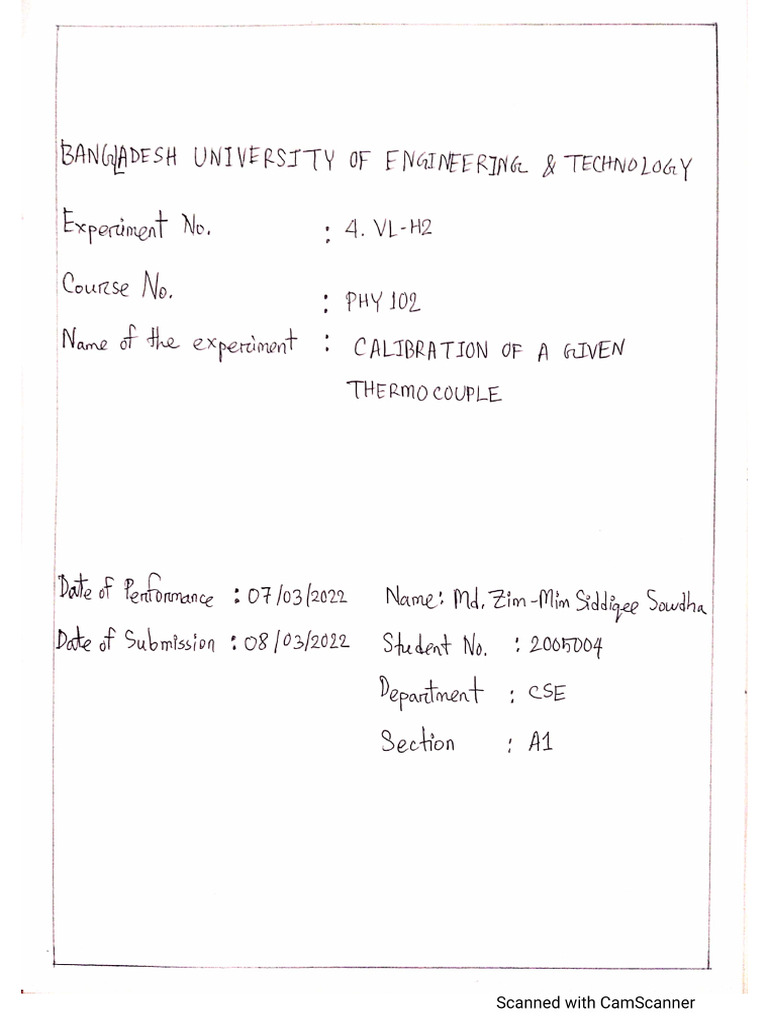 BANGLADESH UNIVERSITY OF ENGINEERING & TECHNOLOGY
Experiment No. : 4. VL-H2
Course No. : PHY 102
Name of the experiment : CALIBRATION OF A GIVEN
THERMOCOUPLE
Date of Performance : 07/03/2022
Date of Submission : 08/03/2022
Name: Md. Zim-Mim Siddiqee Sowdha
Student No. : 2005004
Department : CSE
Section : A1
Scanned with CamScanner